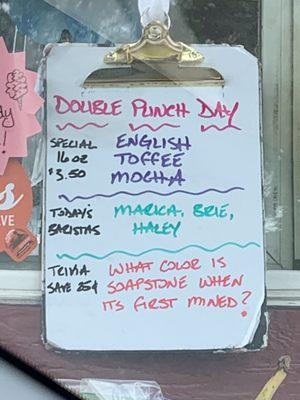 DOUBLE PUNCH DAY
SPECIAL
16 OZ
$3.50
ENGLISH
TOFFEE
MOCHA
TODAY'S
BARISTAS
MARICA, BRIE,
HALEY
TRIVIA
SAVE 25¢
WHAT COLOR IS
SOAPSTONE WHEN
ITS FIRST MINED?